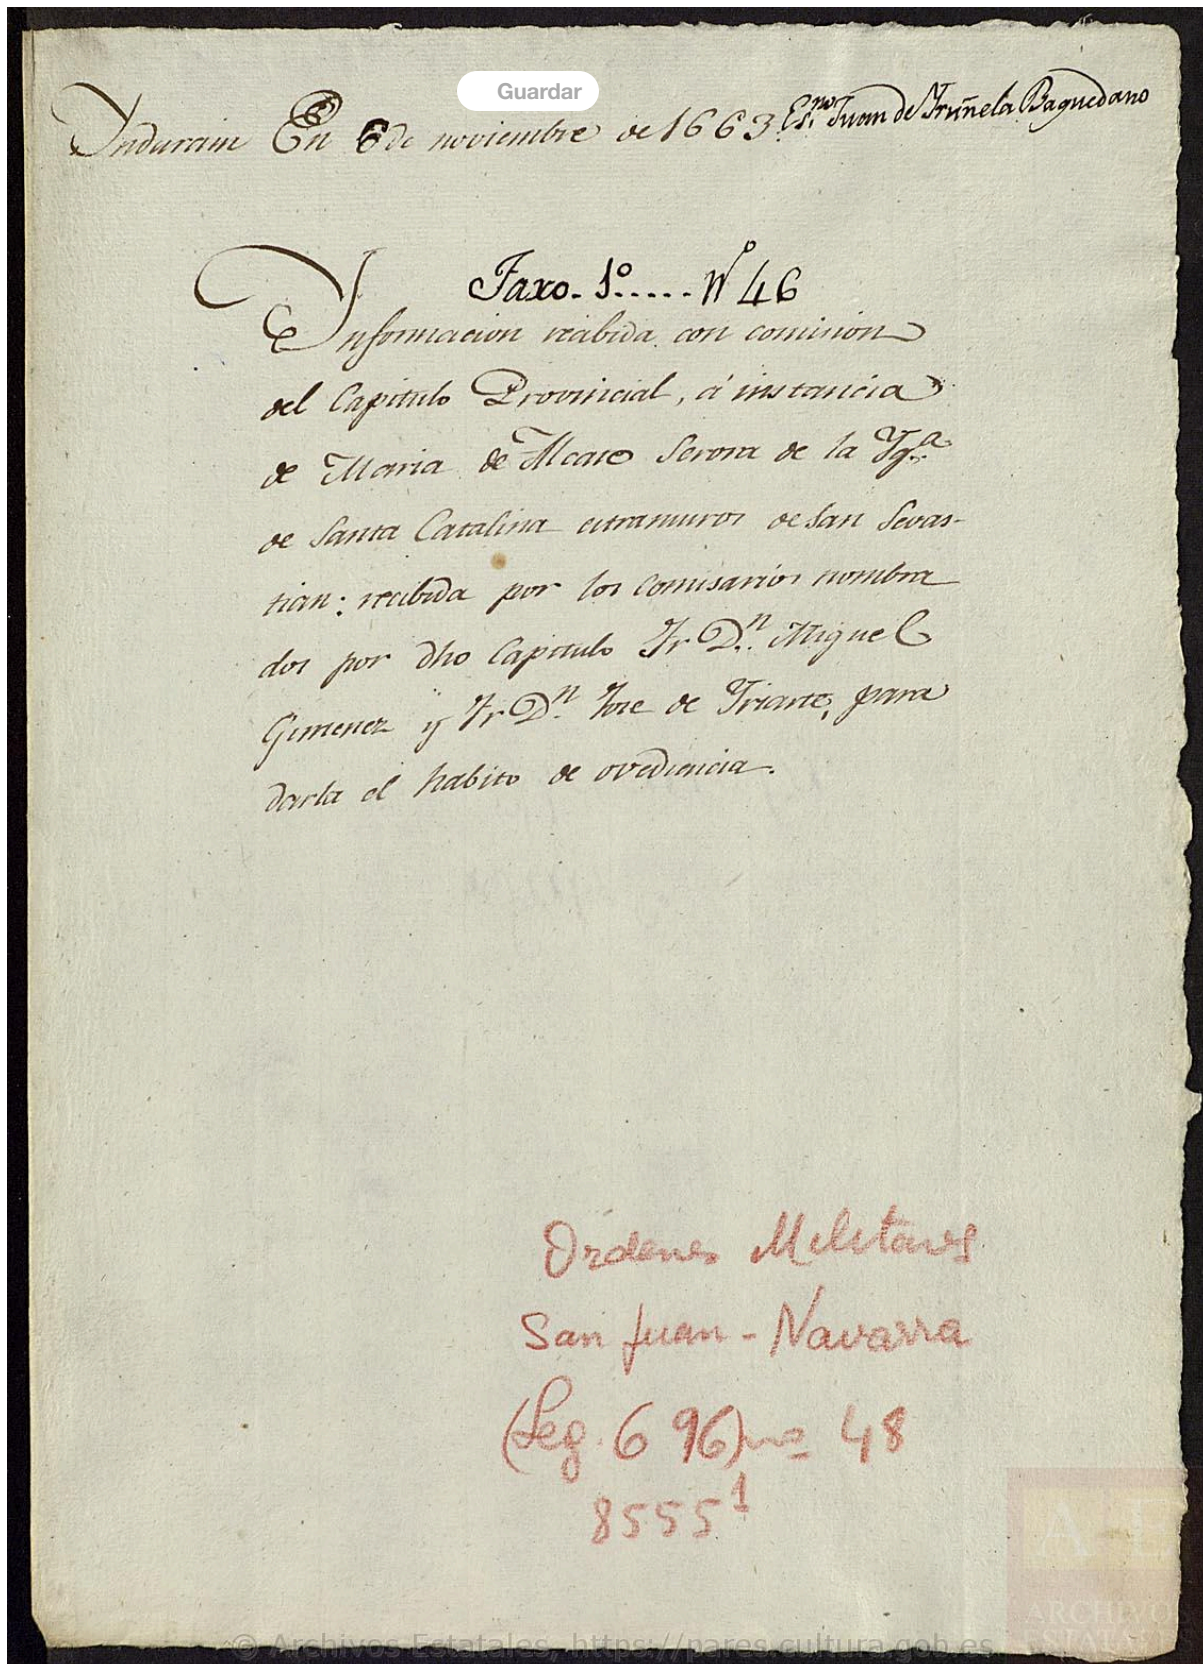 Guardar
Yndurain En 6 de noviembre de 1663. Es.no Juan de Yruñela Baquedano
Faxo. 1º..... Nº 46
Informacion recibida con comision
del Capitulo Provincial, á instancia
de Maria de Alcate Serora de la Yg.a
de Santa Catalina extramuros de San Sevas-
tian: recibida por los Comisarios nombra
dos por dho Capitulo Fr D.n Miguel
Gimenez y Fr D.n Jose de Yriarte, para
darla el habito de ovediencia.
Ordenes Militares
San Juan - Navarra
(Leg. 696) nº 48
8555¹
A E
ARCHIVOS
ESTATALES
© Archivos Estatales, https://pares.cultura.gob.es